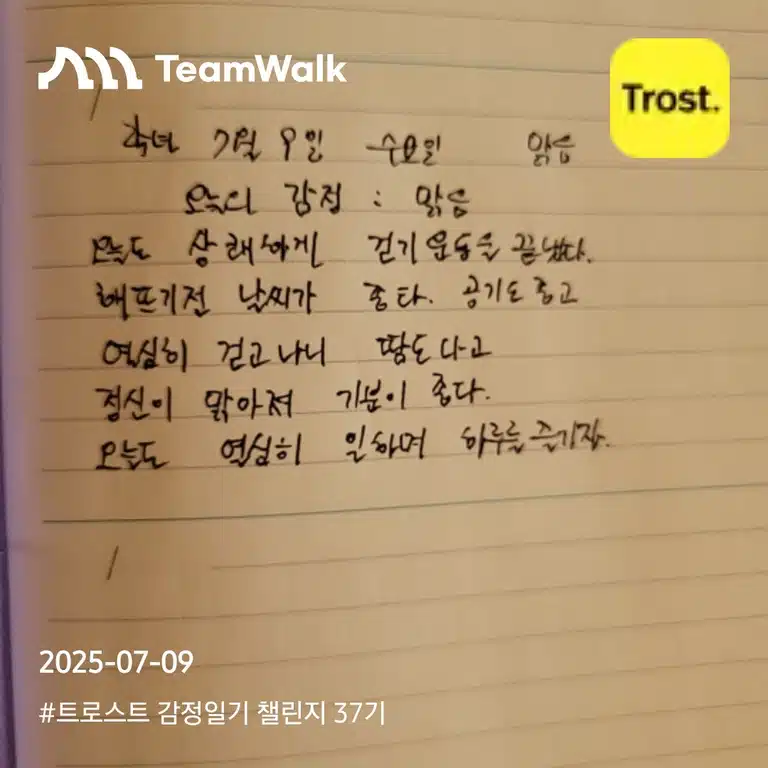 TeamWalk
Trost.
7월 9일 수요일 맑음
오늘의 감정 : 맑음
오늘도 상쾌하게 걷기운동을 끝냈다.
해뜨기전 날씨가 좋타. 공기도 좋고
열심히 걷고나니 땀도나고
정신이 맑아져 기분이 좋다.
오늘도 열심히 일하며 하루를 즐기자.
2025-07-09
#트로스트 감정일기 챌린지 37기